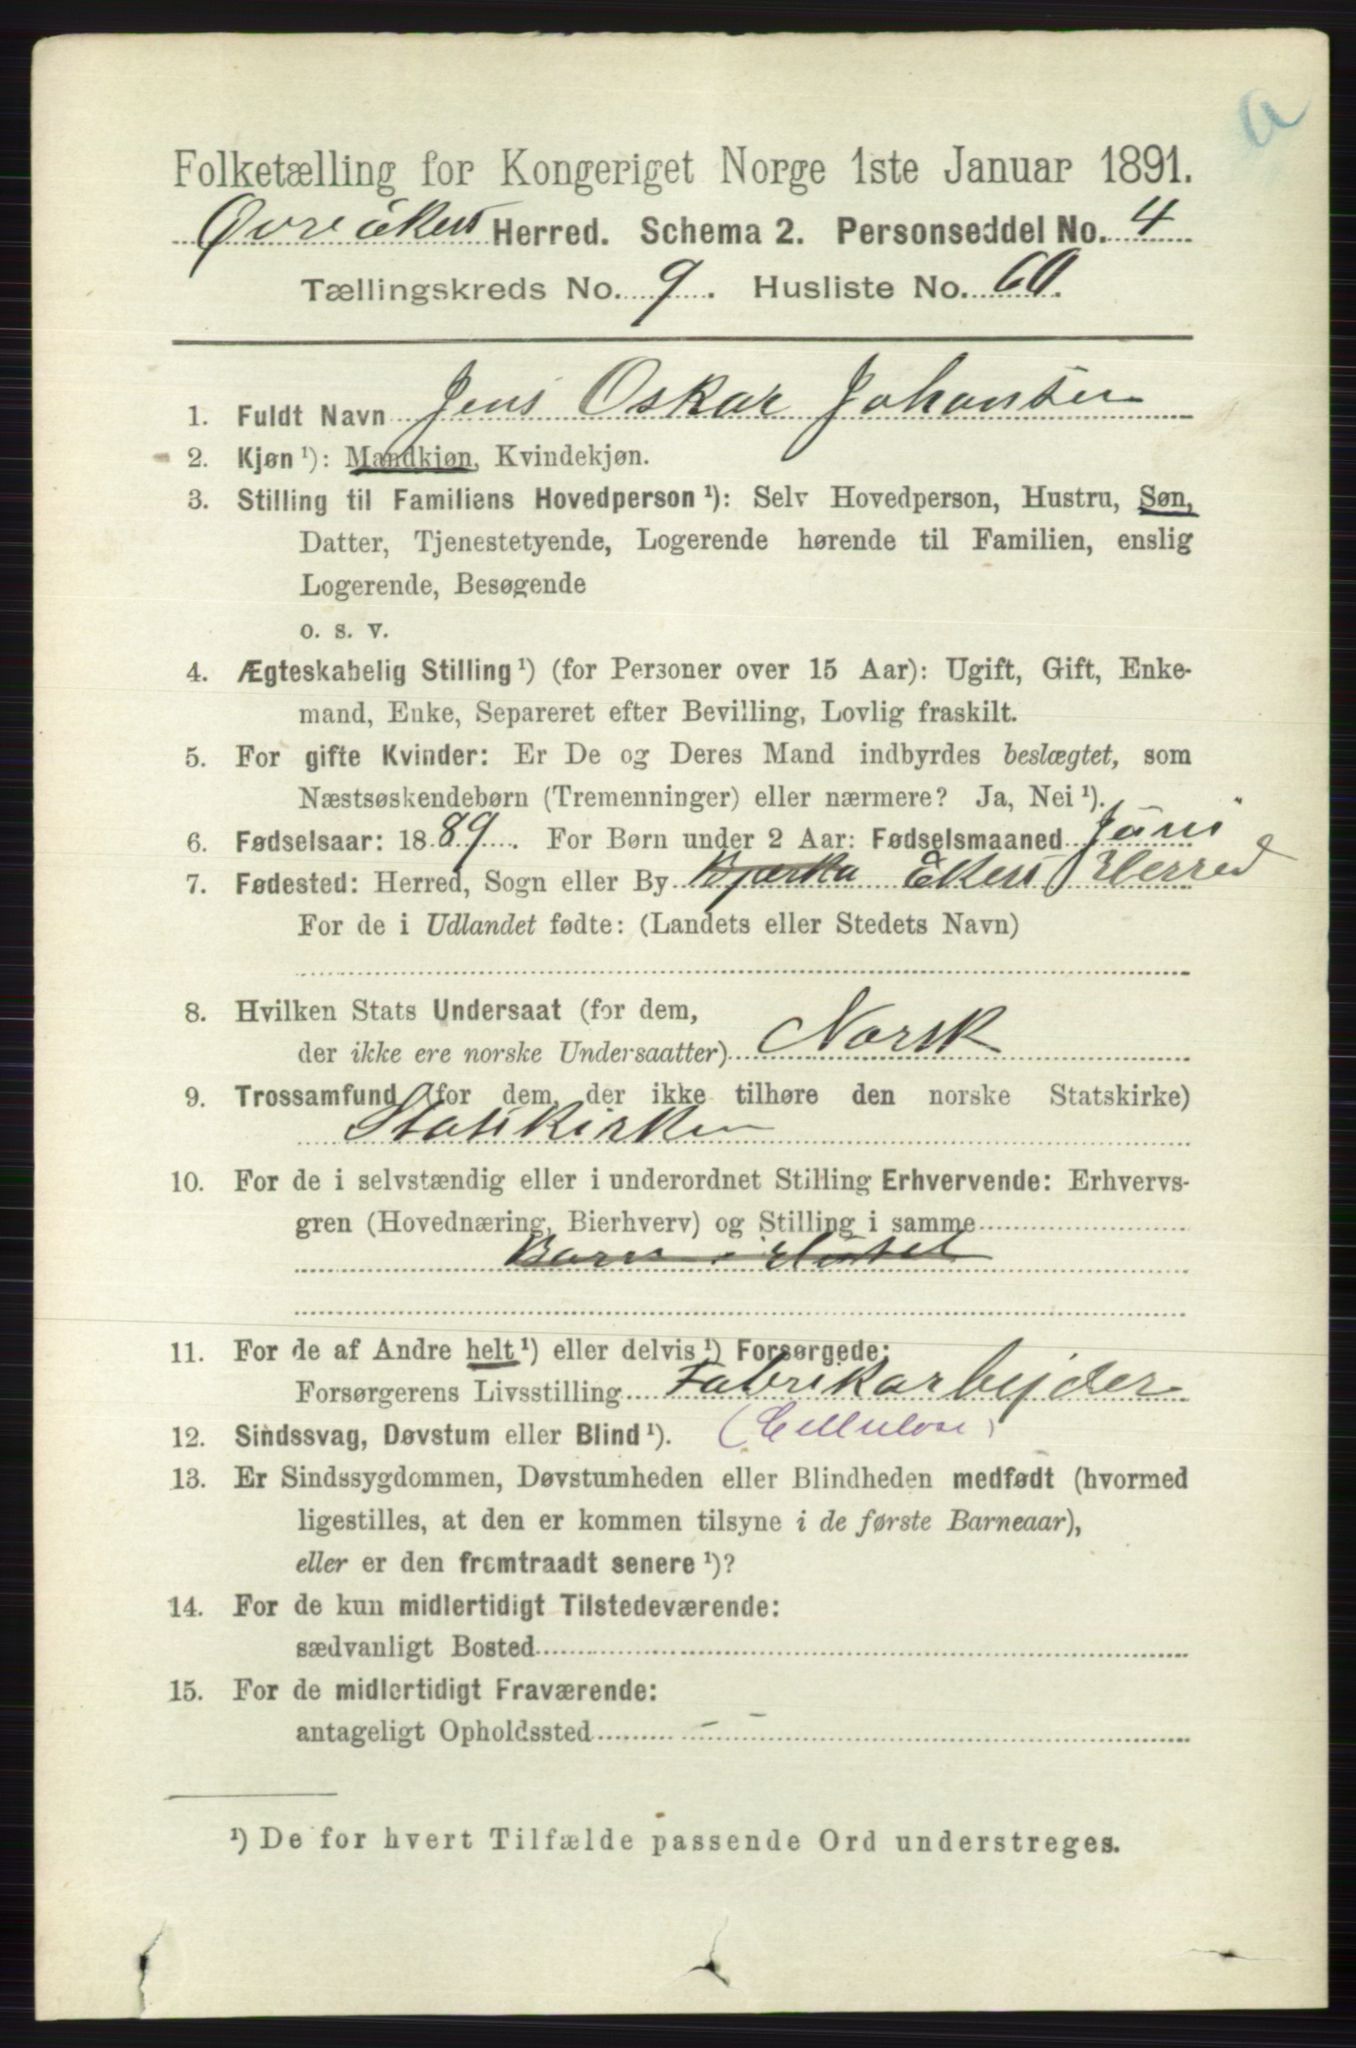 a
Folketælling for Kongeriget Norge 1ste Januar 1891.
Øvre Ekers Herred. Schema 2. Personseddel No. 4
Tællingskreds No. 9. Husliste No. 60.
1. Fuldt Navn Jens Oskar Johansen
2. Kjøn ¹): Mandkjøn, Kvindekjøn.
3. Stilling til Familiens Hovedperson ¹): Selv Hovedperson, Hustru, Søn,
Datter, Tjenestetyende, Logerende hørende til Familien, enslig
Logerende, Besøgende
o. s. v.
4. Ægteskabelig Stilling ¹) (for Personer over 15 Aar): Ugift, Gift, Enke-
mand, Enke, Separeret efter Bevilling, Lovlig fraskilt.
5. For gifte Kvinder: Er De og Deres Mand indbyrdes beslægtet, som
Næstsøskendebørn (Tremenninger) eller nærmere? Ja, Nei ¹).
6. Fødselsaar: 1889. For Børn under 2 Aar: Fødselsmaaned Juni
7. Fødested: Herred, Sogn eller By Bjerka Ekers Herred
For de i Udlandet fødte: (Landets eller Stedets Navn)
8. Hvilken Stats Undersaat (for dem,
der ikke ere norske Undersaatter) Norsk
9. Trossamfund (for dem, der ikke tilhøre den norske Statskirke)
Statskirken
10. For de i selvstændig eller i underordnet Stilling Erhvervende: Erhvervs-
gren (Hovednæring, Bierhverv) og Stilling i samme
Barn i Huset
11. For de af Andre helt ¹) eller delvis ¹) Forsørgede:
Forsørgerens Livsstilling Fabrikarbejder
12. Sindssvag, Døvstum eller Blind ¹). (Cellulose)
13. Er Sindssygdommen, Døvstumheden eller Blindheden medfødt (hvormed
ligestilles, at den er kommen tilsyne i de første Barneaar),
eller er den fremtraadt senere ¹)?
14. For de kun midlertidigt Tilstedeværende:
sædvanligt Bosted
15. For de midlertidigt Fraværende:
antageligt Opholdssted
¹) De for hvert Tilfælde passende Ord understreges.